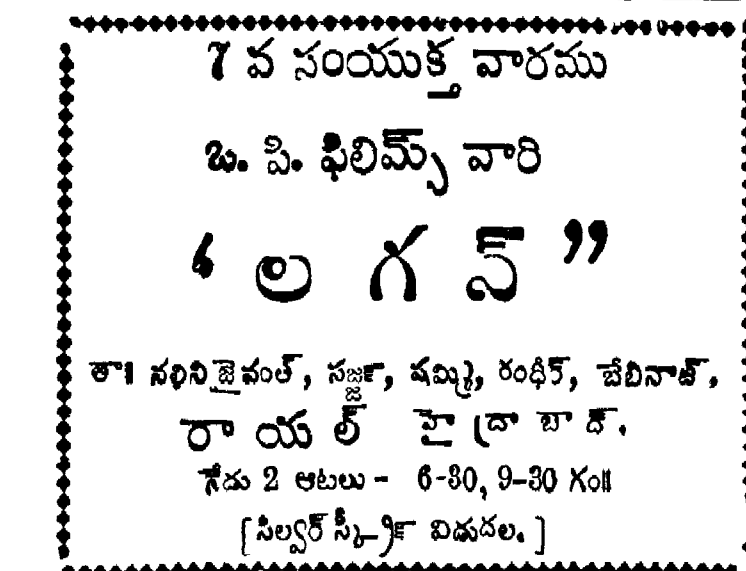 7 వ సంయుక్త వారము
ఒ. పి. ఫిలిమ్స్ వారి
“ లగన్ ”
తా॥ నళిని జైవంత్, సజ్జన్, షమ్మి, రంధీర్, బేబినాజ్.
రాయల్ హైద్రాబాద్.
నేడు 2 ఆటలు - 6-30, 9-30 గం॥
[ సిల్వర్ స్క్రీన్ విడుదల. ]